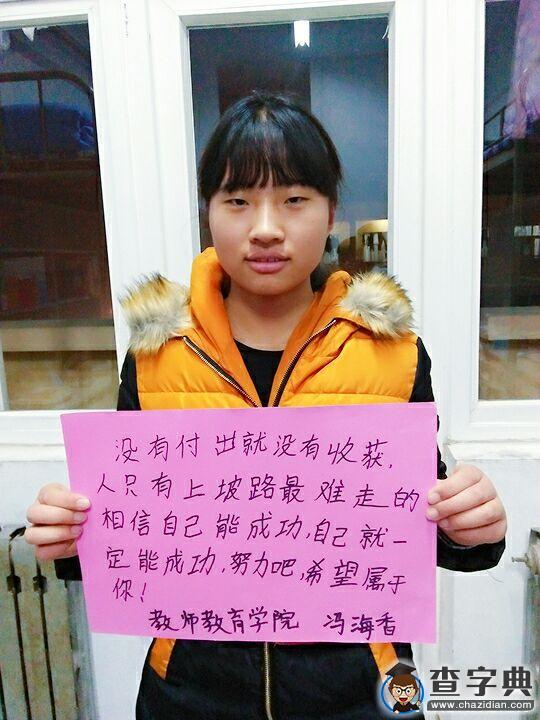 没有付出就没有收获，
人只有上坡路最难走的
相信自己能成功，自己就一
定能成功，努力吧，希望属于
你！
教师教育学院 冯海香
查字典
www.chazidian.com